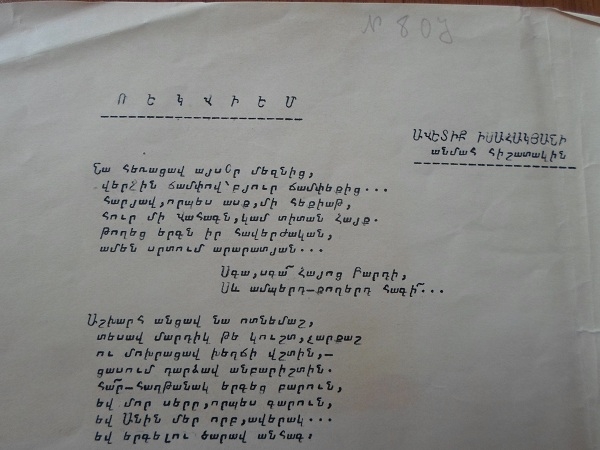 N 80Ֆ
ՌԵՔՎԻԵՄ
ԱՎԵՏԻՔ ԻՍԱՀԱԿՅԱՆԻ
անմահ հիշատակին
Նա հեռացավ այսօր մեզնից,
վերջին ճամփով՝բյուր ճամփեքից...
Հարյավ,որպես ասք,մի հեքիաթ,
Հուր մի Վահագն,կամ տիտան Հայք.
Թողեց երգն իր հավերժական,
ամեն սրտում արարատյան...
Սգա,սգա՜ Հայոց Բարդի,
Սև ամպերդ-քողերդ հագի՜...
Աշխարհ անցավ նա ոտնեմաշ,
տեսավ մարդիկ թե կուշտ,չարքաշ
ու մոխրացավ խեղճի վշտին,–
ցասում դարձավ անբարիշտին.
Հա՜ր-հաղթանակ երգեց բարուն,
եվ մոր սերը,որպես գարուն,
եվ Անին մեր որբ,ավերակ...
եվ երգելու ծարավ անհագ: